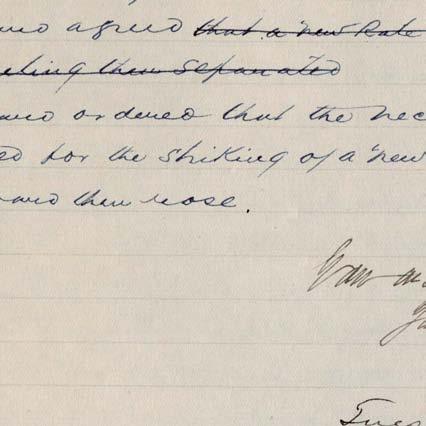 agreed that a new Rate
them separated
ordered that the nec
for the striking of a new
then rose.
Tues